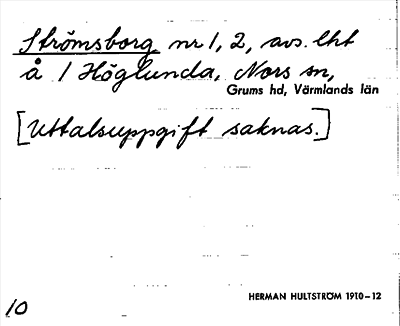 Strömsborg nr 1, 2, avs. lht
å 1 Höglunda, Nors sn,
Grums hd, Värmlands län
[Uttalsuppgift saknas.]
HERMAN HULTSTRÖM 1910-12
10